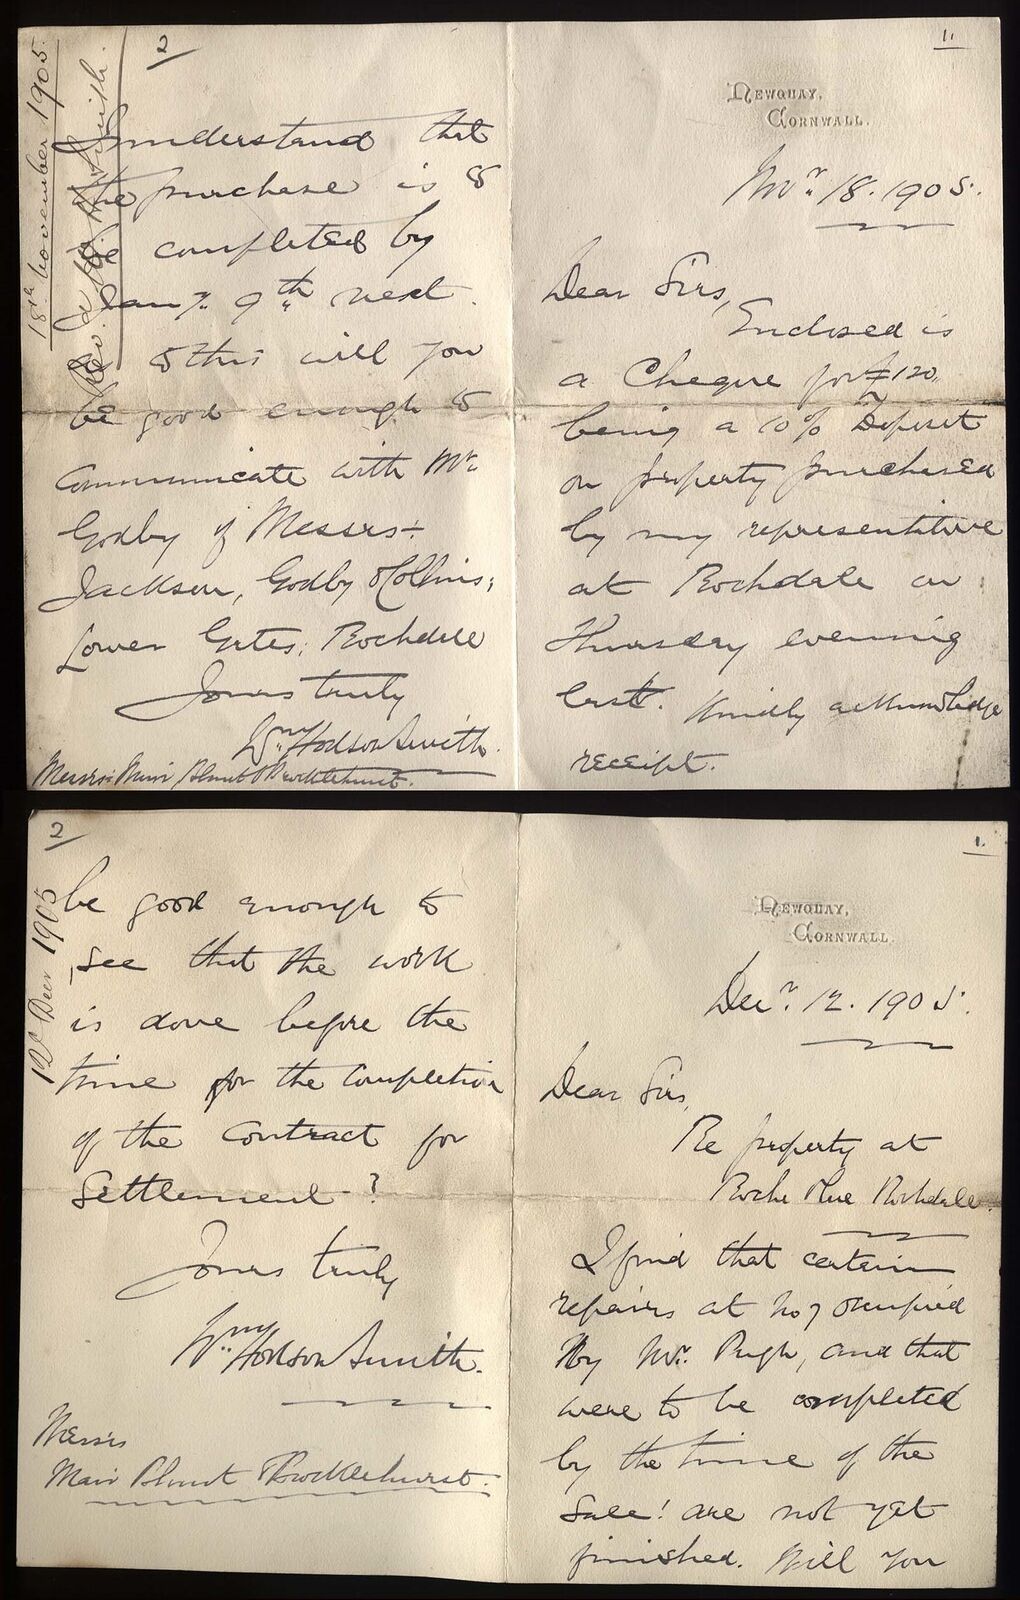 1.
NEWQUAY,
CORNWALL.
Novr. 18. 1905.
Dear Sirs,
Enclosed is
a Cheque for £120,
being a 10% Deposit
on property purchased
by my representative
at Rochdale on
Thursday evening
last. Kindly acknowledge
receipt.
2
18th November 1905.
I understand that
the purchase is to
be completed by
Jany. 9th next.
to this will you
be good enough to
communicate with Mr.
Godby of Messrs.
Jackson, Godby & Collins,
Lower Gates, Rochdale
Yours truly
Wm. Hodson Smith.
Messrs. Blunt & Brocklehurst.
1.
NEWQUAY,
CORNWALL.
Decr. 12. 1905.
Dear Sirs,
Re property at
Roche Rochdale.
I find that certain
repairs at No 7 occupied
by Mr. Pugh, and that
were to be completed
by the time of the
Sale! are not yet
finished. Will you
2
12 Decr 1905
be good enough to
see that the work
is done before the
time for the completion
of the contract for
Settlement?
Yours truly
Wm. Hodson Smith.
Messrs
Blunt & Brocklehurst.